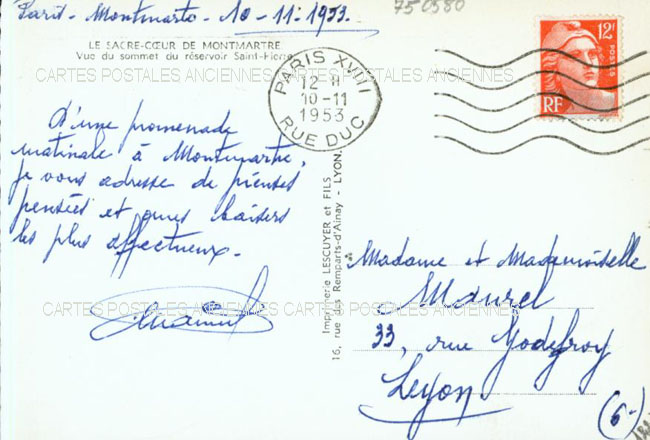 Paris - Montmartre - 10-11-1953.
750580
LE SACRE-CŒUR DE MONTMARTRE
Vue du sommet du réservoir Saint-Pierre
CARTES POSTALES ANCIENNES CARTES POSTALES ANCIENNES
PARIS XVIII
12 H
10-11
1953
RUE DUC
12F
POSTES
RF
D'une promenade
matinale à Montmartre,
je vous adresse de pieuses
pensées et mes baisers
les plus affectueux.
Imprimerie LESCUYER et FILS
16, rue des Remparts-d'Ainay - LYON.
Madame et Mademoiselle
Maurel
33, rue Godefroy
Lyon
CARTES POSTALES ANCIENNES CARTES POSTALES ANCIENNES
(6-)